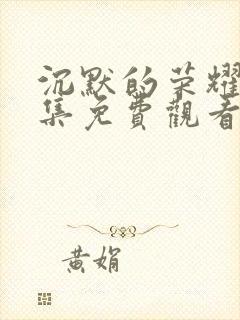 沉默的荣耀
集免費觀看
黄娟